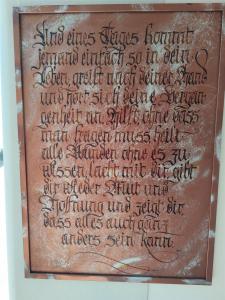 Und eines Tages kommt
jemand einfach so in dein
Leben, greift nach deiner Hand
und hört sich deine Vergan-
genheit an. Hilft ohne dass
man fragen muss, heilt
alle Wunden ohne es zu
wissen, lacht mit dir, gibt
dir wieder Mut und
Hoffnung und zeigt dir,
dass alles auch ganz
anders sein kann.